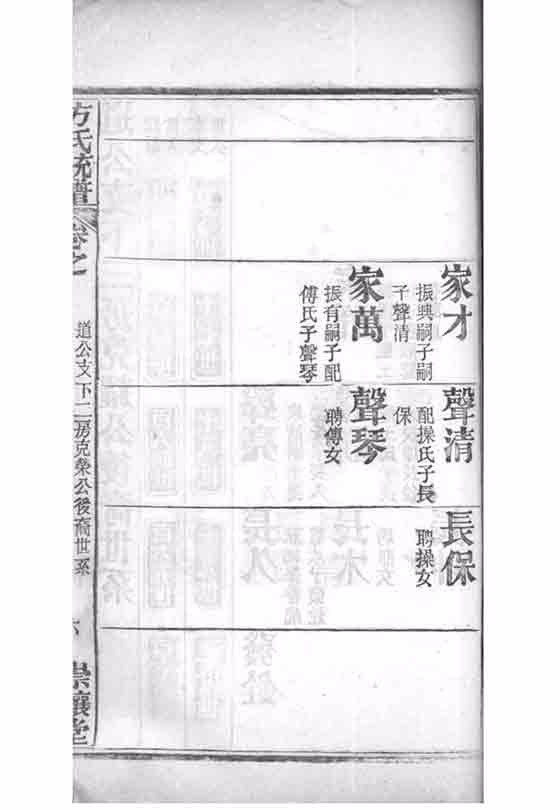 家才
振興嗣子嗣
子聲清
家萬
振育嗣子配
傅氏子聲琴
聲清
配操氏子長
保
聲琴
聘傅女
長保
聘操女
方氏統譜
卷之
道公支下二房克榮公後裔世系
六
崇讓堂